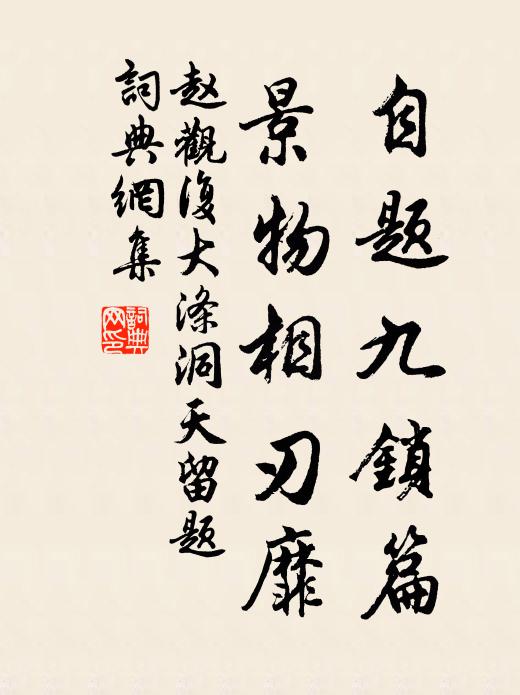 自题九鎖篇
景物相刃靡
赵觀復大滌洞天留题
詞典網集
詞典网印